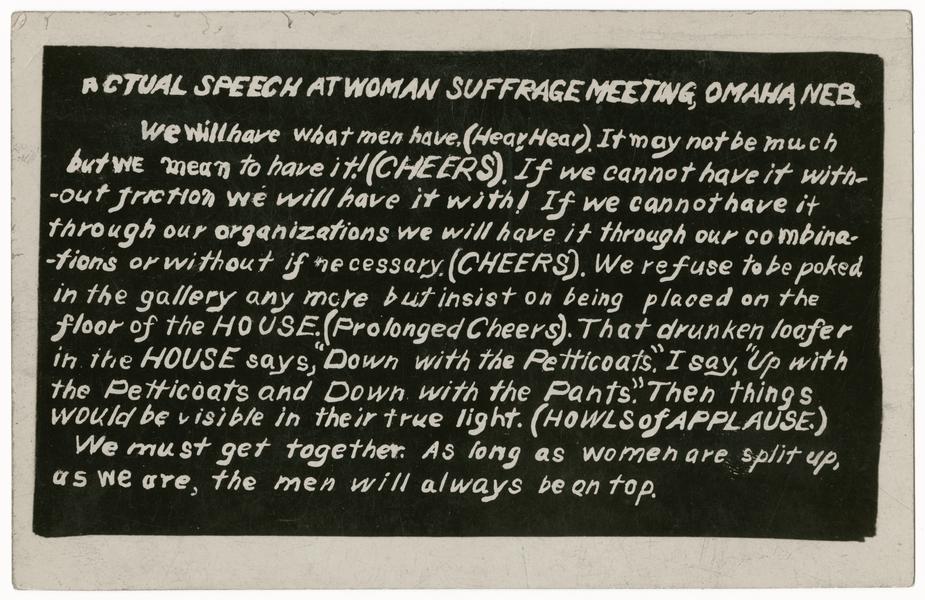 ACTUAL SPEECH AT WOMAN SUFFRAGE MEETING, OMAHA, NEB.
We will have what men have. (Hear, Hear). It may not be much
but WE mean to have it! (CHEERS). If we cannot have it with-
-out friction we will have it with! If we cannot have it
through our organizations we will have it through our combina-
-tions or without if necessary. (CHEERS). We refuse to be poked
in the gallery any more but insist on being placed on the
floor of the HOUSE. (Prolonged Cheers). That drunken loafer
in the HOUSE says, "Down with the Petticoats". I say, "Up with
the Petticoats and Down with the Pants." Then things
would be visible in their true light. (HOWLS of APPLAUSE.)
We must get together. As long as women are split up,
as we are, the men will always be on top.